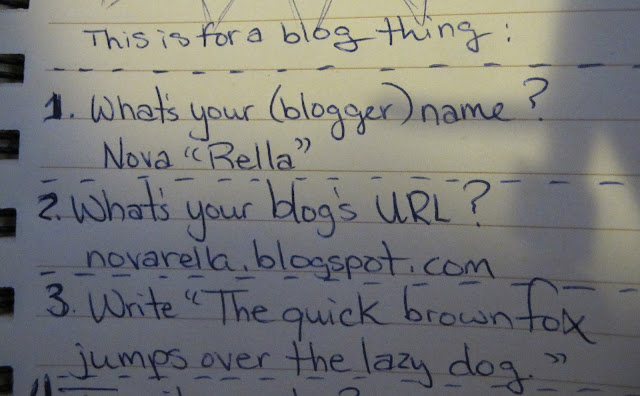 This is for a blog thing:
1. What's your (blogger) name?
Nova "Rella"
2. What's your blog's URL?
novarella.blogspot.com
3. Write "The quick brown fox
jumps over the lazy dog."